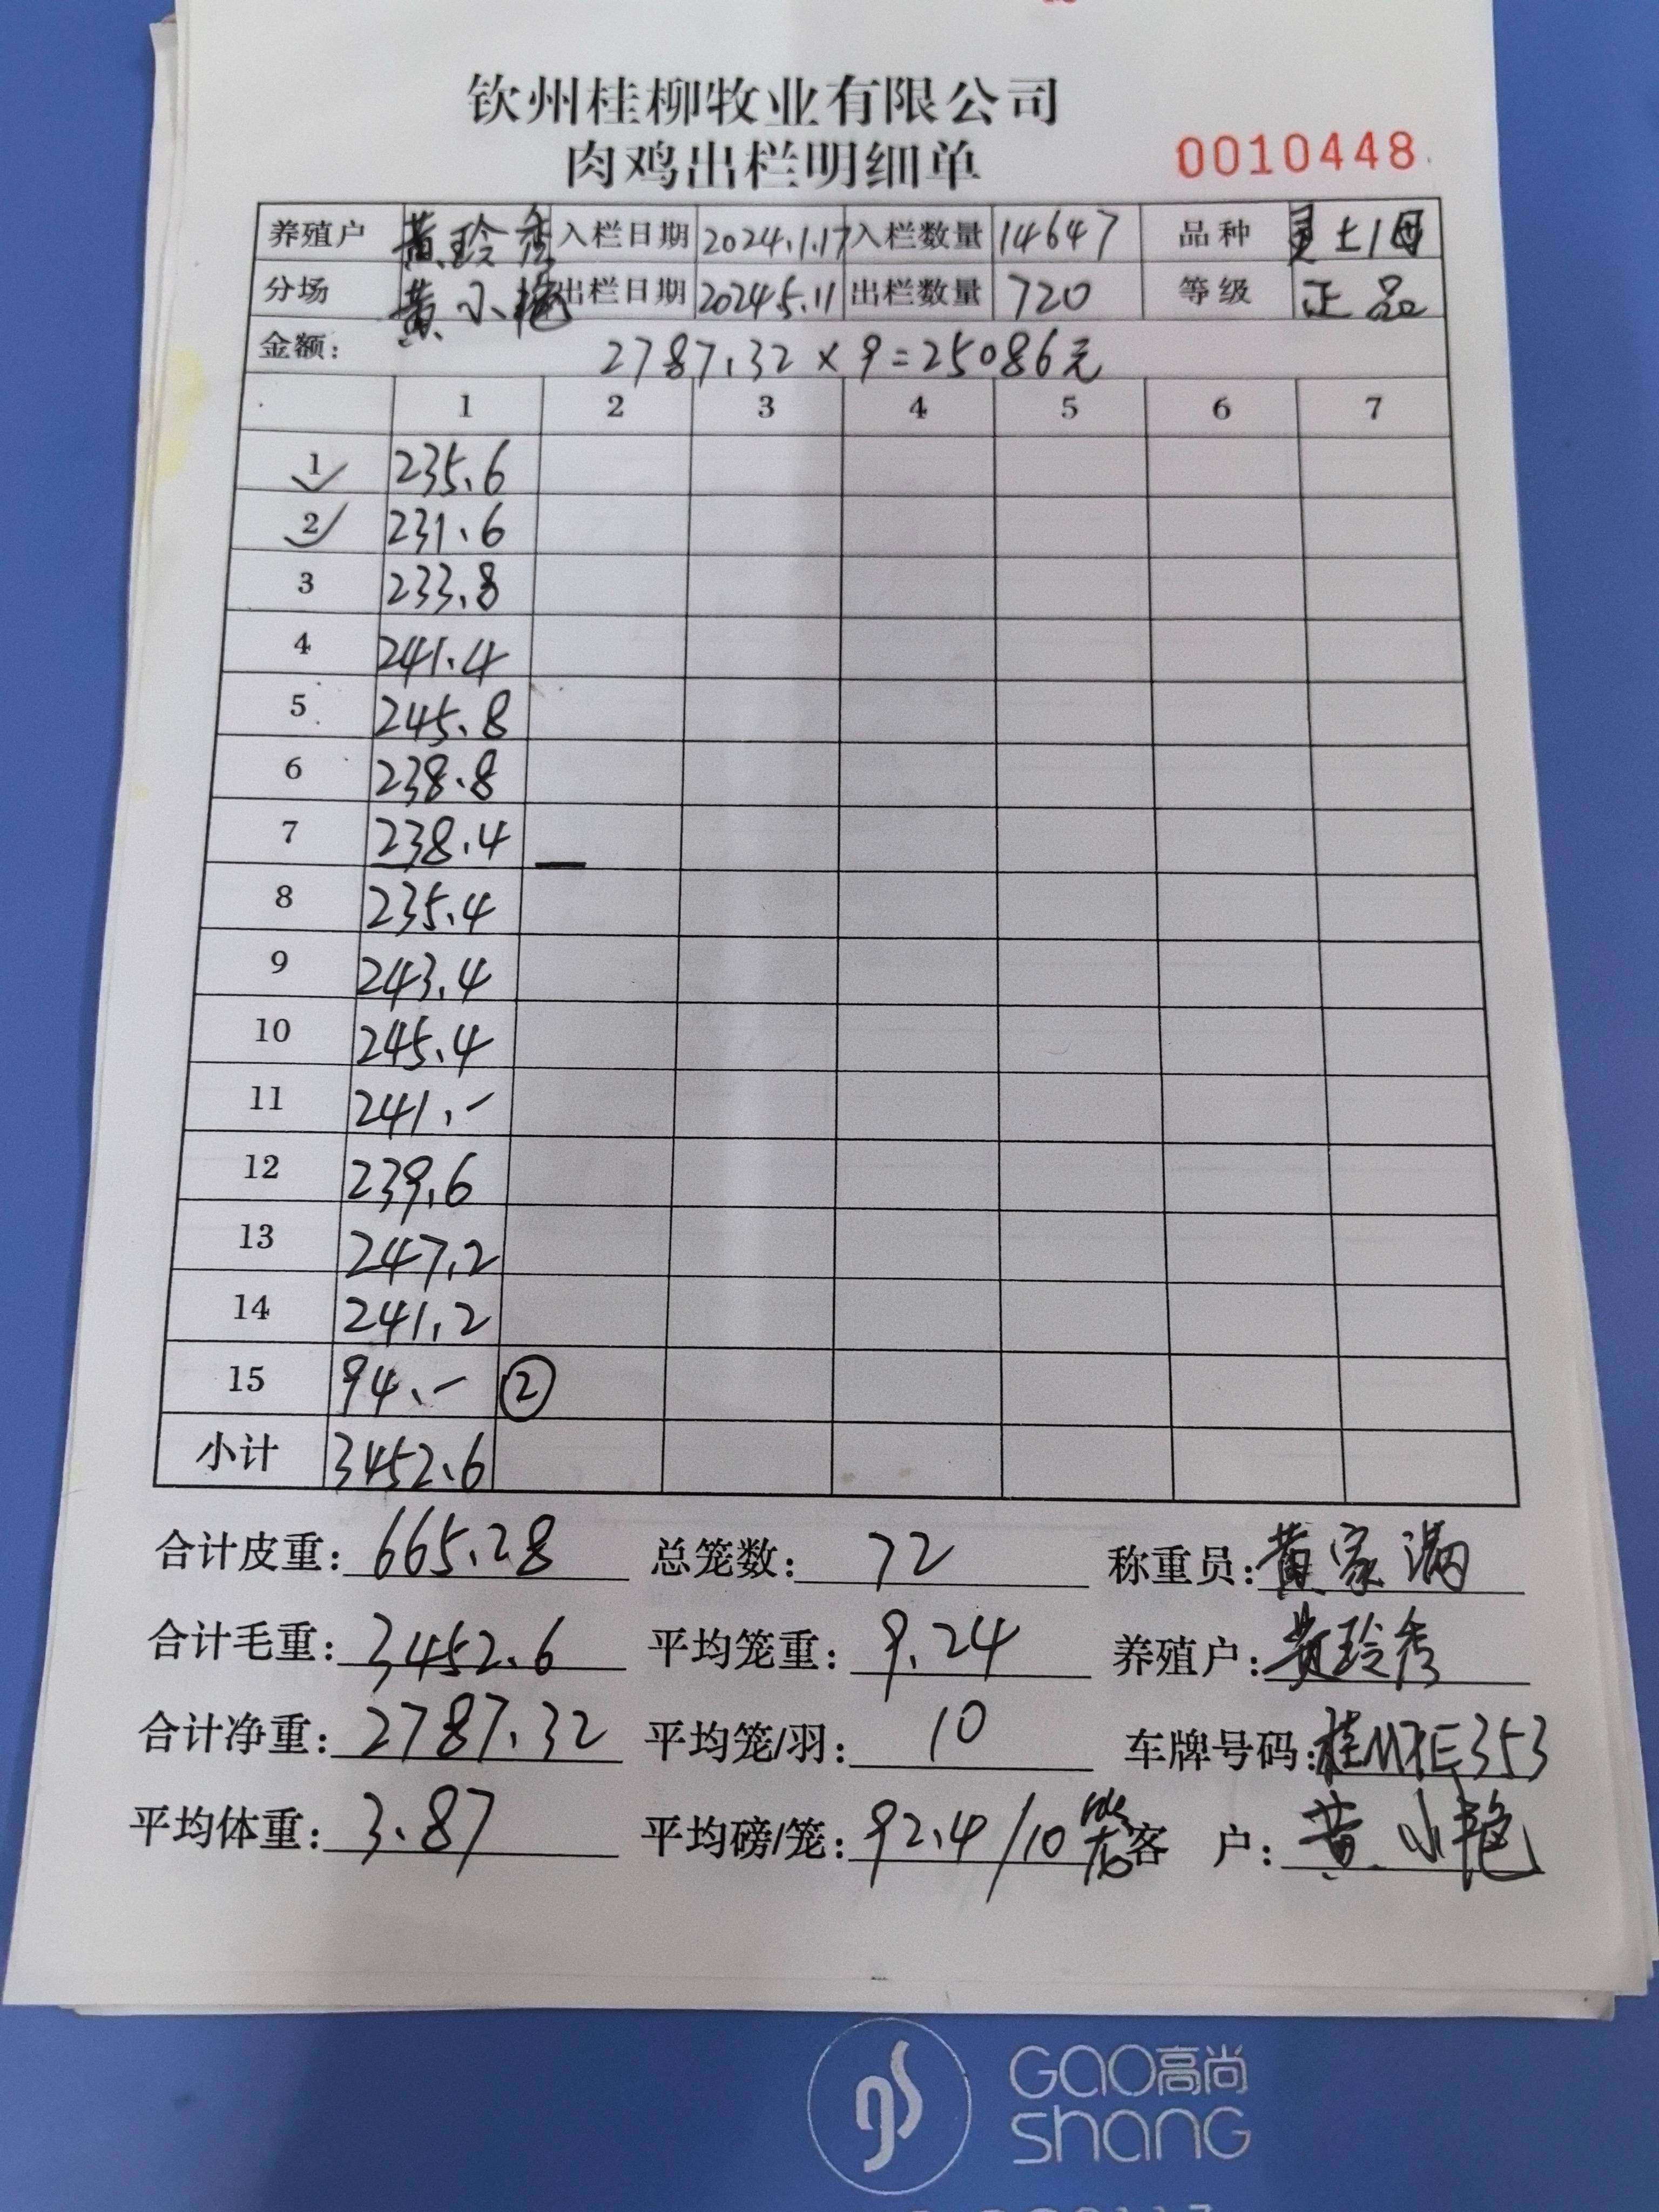 钦州桂柳牧业有限公司
肉鸡出栏明细单 0010448
养殖户 黄玲秀 入栏日期 2024.1.17 入栏数量 14647 品种 土1母
分场 黄小艳 出栏日期 2024.5.11 出栏数量 720 等级 正品
金额: 2787.32 × 9 = 25086元
1 2 3 4 5 6 7
1 235.6
2 231.6
3 233.8
4 241.4
5 245.8
6 238.8
7 238.4 —
8 235.4
9 243.4
10 245.4
11 241.-
12 239.6
13 247.2
14 241.2
15 94.- ②
小计 3452.6
合计皮重: 665.28 总笼数: 72 称重员: 黄家满
合计毛重: 3452.6 平均笼重: 9.24 养殖户: 黄玲秀
合计净重: 2787.32 平均笼/羽: 10 车牌号码: 353
平均体重: 3.87 平均磅/笼: 92.4/10 客 户: 黄小艳
GAO高尚
shang